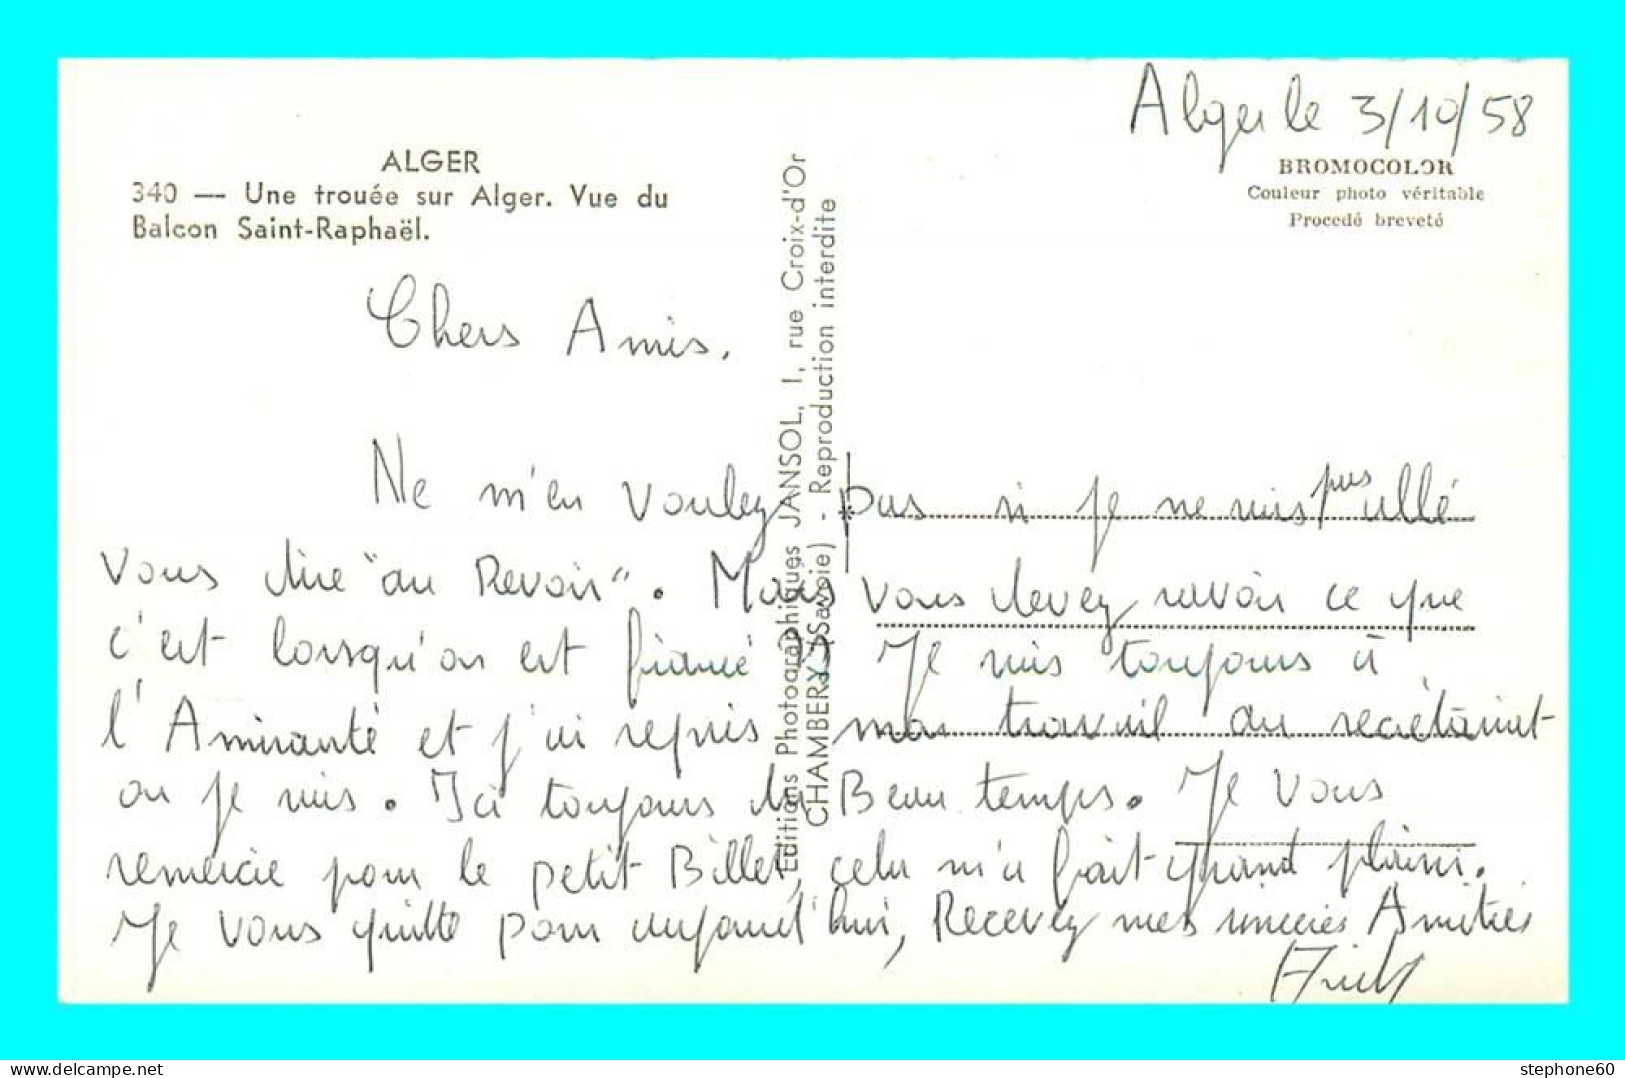 Alger le 3/10/58
ALGER
340 — Une trouée sur Alger. Vue du
Balcon Saint-Raphaël.
BROMOCOLOR
Couleur photo véritable
Procedé breveté
Editions Photographiques JANSOL, 1, rue Croix-d'Or
CHAMBERY (Savoie) - Reproduction interdite
Chers Amis.
Ne m'en voulez pas si je ne suis pas allé
vous dire "au Revoir". Mais vous devez savoir ce que
c'est lorsqu'on est fiancé Je suis toujours à
l'Amirauté et j'ai repris mon travail au secrétariat
ou je suis. Ici toujours du Beau temps. Je vous
remercie pour le petit Billet, cela m'a fait grand plaisir.
Je vous quitte pour aujourd'hui, Recevez mes sincères Amitiés
stephone60